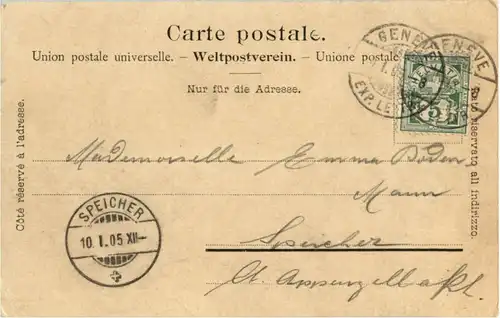 Carte postale.
Union postale universelle. – Weltpostverein. – Unione postale
Nur für die Adresse.
Côté réservé à l'adresse.
Lato riservato all indirizzo.
GENÈVE
EXP. LETTR.
GENÈVE
5
Mademoiselle Emma Boden
Mann
Speicher
Ct. Appenzell
SPEICHER
10. I. 05 XII–